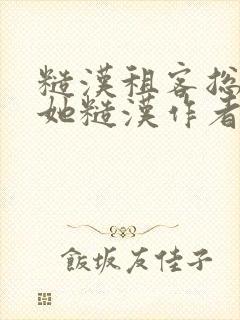 糙漢租客总
她糙漢作者
飯坂友佳子